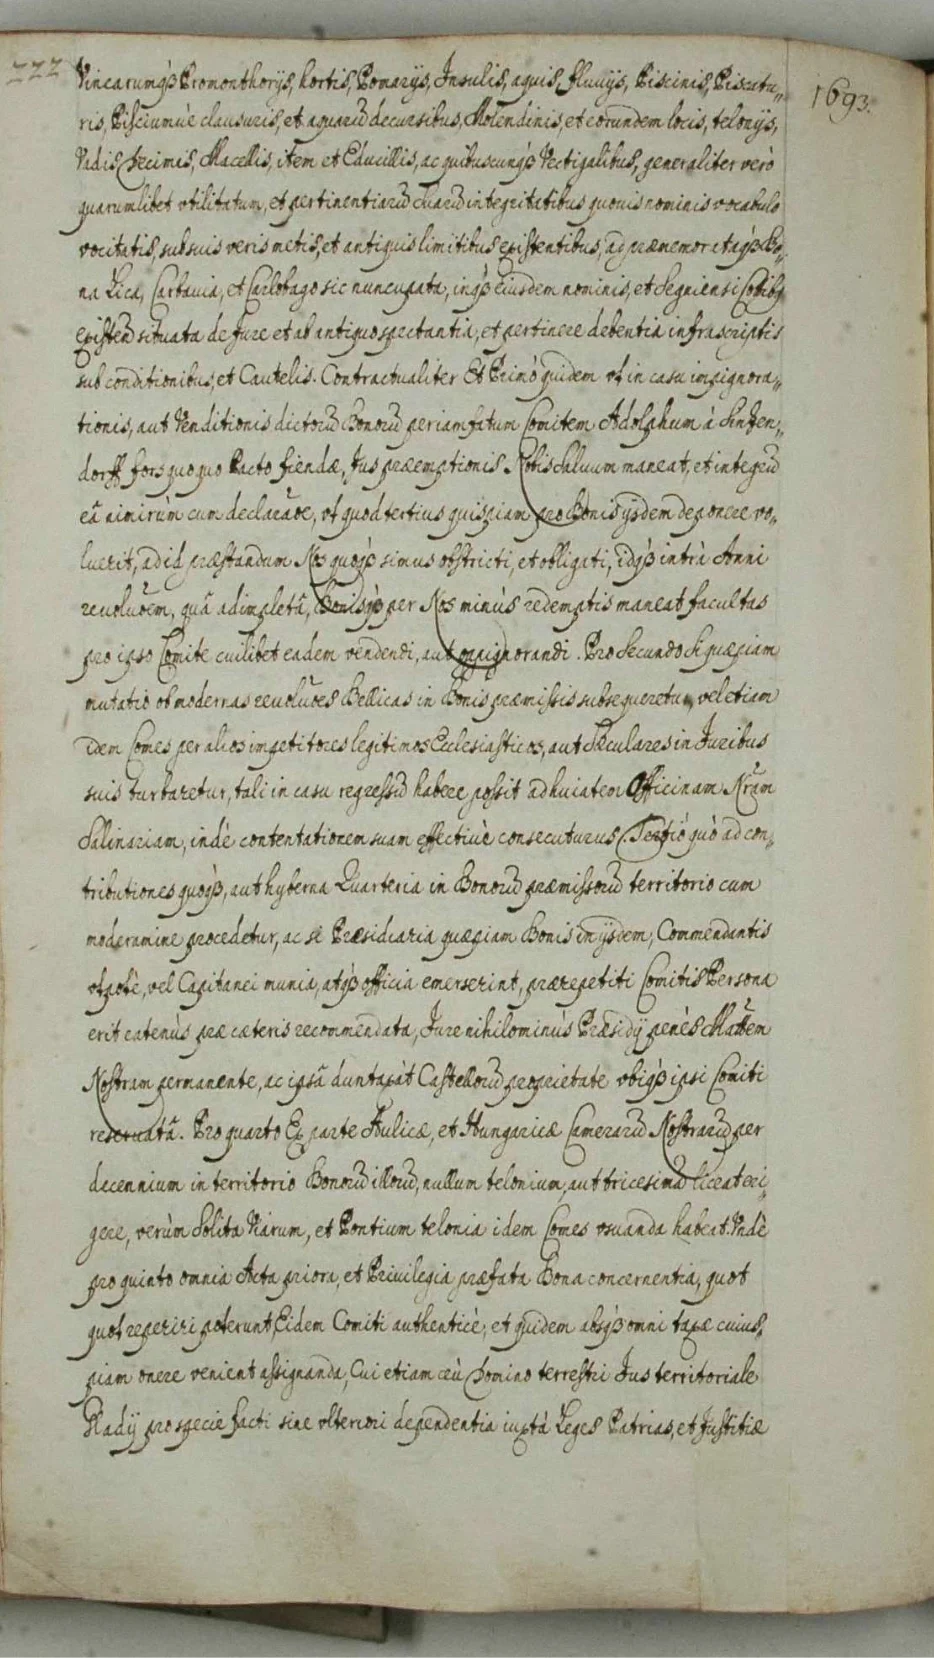 222
1693.
Vinearumq₃ Promonthorijs, hortis, Pomarijs, Insulis, aquis, fluuijs, Piscinis, Piscatu„
ris, Pisciumuè clausuris, et aquarū decursibus, Molendinis, et eorundem locis, telonijs,
Vadis Decimis, Macellis, item et Educillis, ac quibuscunq₃ Vectigalibus, generaliter verò
quarumlibet vtilitatum, et pertinentiarū suarū integritatibus quouis nominis vocabulo
vocitatis, sub suis veris metis, et antiquis limitibus existentibus, ad prænemorataq₃ Bo„
na Lica, Carbauia, et Carlobago sic nuncupata, inq₃ eiusdem nominis, et Segniensi Cottibq₃
existeñ situata de Jure et ab antiquo spectantia, et pertinere debentia infrascriptis
sub conditionibus, et Cautelis. Contractualiter Et Primò quidem vt in casu impignora„
tionis, aut Venditionis dictorū Bonorū per iam fatum Comitem Adolphum à Sinzen„
dorff fors quoquo Pacto fiendæ, Jus præemptionis Nobis Saluum maneat, et integrū
eā nimirùm cum declaraõe, vt quod tertius quispiam pro Bonis ijsdem deponere vo„
luerit, ad id præstandum Nos quoq₃ simus obstricti, et obligati, idq₃ intrà Anni
reuoluõem, quā adimpletā, Bonisq₃ per Nos minùs redemptis maneat facultas
pro ipso Comite cuilibet eadem vendendi, aut oppignorandi. Pro Secundo Si quæpiam
mutatio ob modernas reuoluões Bellicas in Bonis præmissis subsequeretur, vel etiam
idem Comes per alios impetitores legitimos Ecclesiasticos, aut Sæculares in Juribus
suis turbaretur, tali in casu regressū habere possit ad huiatem Officinam Nrãm
Salinariam, indè contentationem suam effectiuè consecuturus. Tertiò quò ad con„
tributiones quoq₃, aut hyberna Quarteria in Bonorū præmissorū territorio cum
moderamine procedetur, ac si Præsidiaria quæpiam Bonis in ijsdem, Commendantis
vtpotè, vel Capitanei munia, atq₃ officia emerserint, præpetiti Comitis Persona
erit eatenùs præ cæteris recommendata, Jure nihilominùs Præsidij penès Mattẽm
Nostram permanente, ac ipsā duntaxàt Castellorū proprietate vbiq₃ ipsi Comiti
reseruatā. Pro quarto Ex parte Aulicæ, et Hungaricæ Camerarū Nostrarū per
decennium in territorio Bonorū illorū, nullum telonium, aut tricesima liceat eri„
gere, verùm Solita Viarum, et Pontium telonia idem Comes vsuanda habeat. Vndè
pro quinto omnia Acta priora, et Priuilegia præfata Bona concernentia, quot
quot reperiri poterunt, Eidem Comiti authenticè, et quidem absq₃ omni taxæ cuius„
piam onere venient assignanda, Cui etiam ceù Domino terrestri Jus territoriale
Gladij pro specie facti sine vlteriori dependentia iuxtà Leges Patrias, et Justitiæ